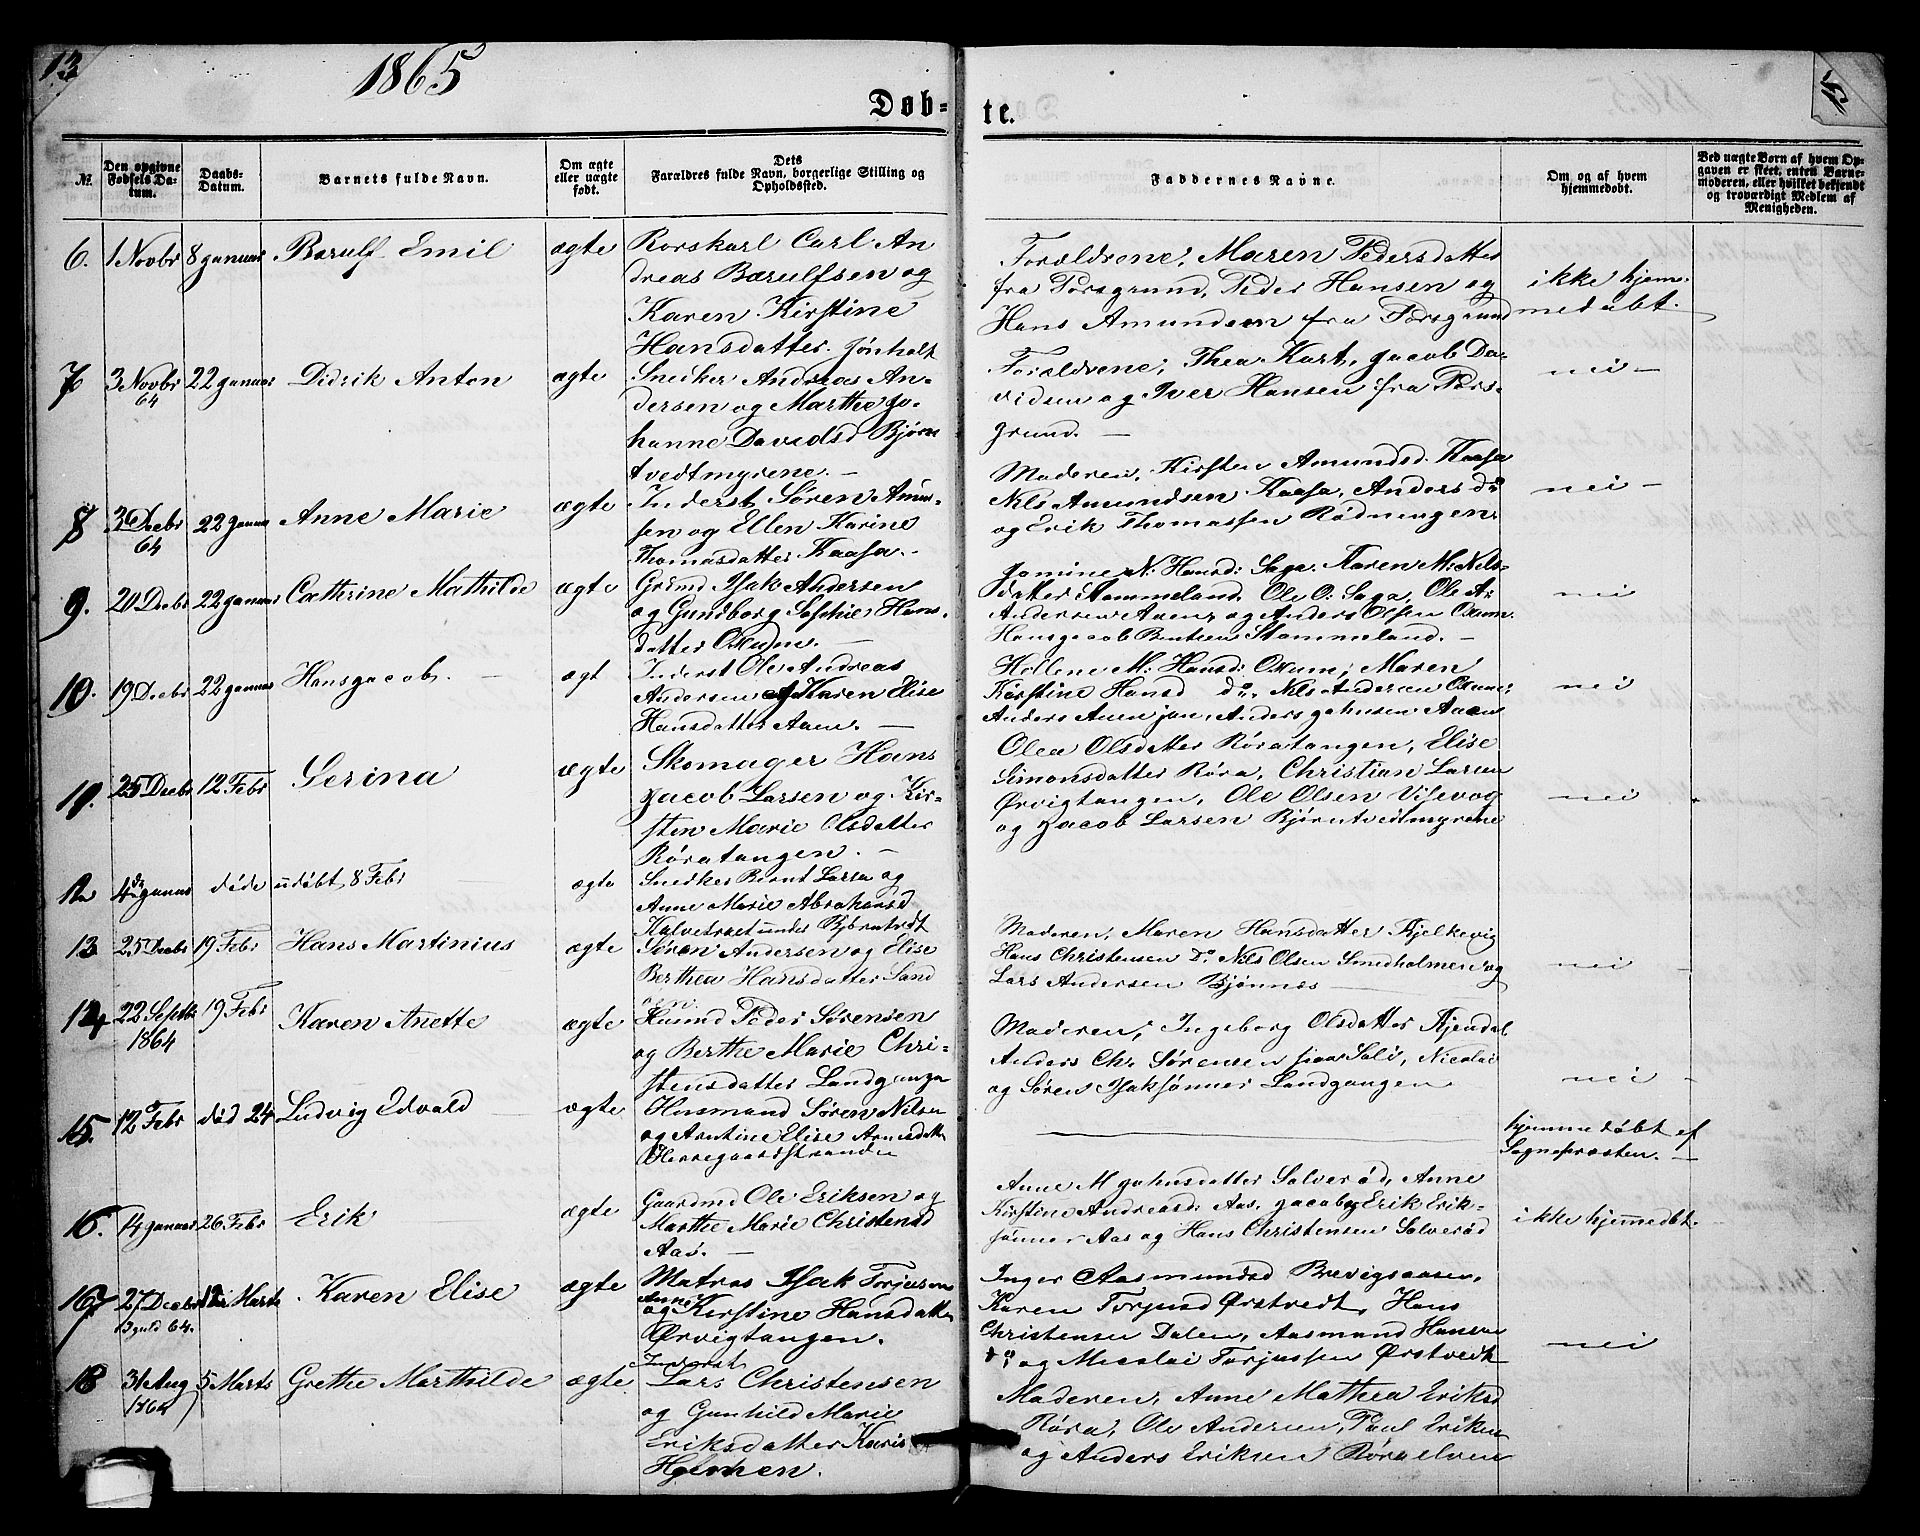 13
1865
Døb-
te.
№.
Den opgivne Fødsels Datum.
Daabs-Datum.
Barnets fulde Navn.
Om ægte eller uægte født.
Dets Forældres fulde Navn, borgerlige Stilling og Opholdssted.
Faddernes Navne.
Om og af hvem hjemmedøbt.
Ved uægte Børn af hvem Opgaven er skeet, enten Barnemoderen, eller hvilket bekjendt og troværdigt Medlem af Menigheden.
6. 1 Novbr 8 Januar Barulf Emil ægte
Rorskarl Carl An
dreas Barulfsen og
Karen Kirstine
Hansdatter. Jønholt
Forældrene, Maren Pedersdatter
fra Porsgrund, Peder Hansen og
Hans Amundsen fra Porsgrund
ikke hjem-
medøbt.
7 3 Novbr 64 22 Januar Didrik Anton ægte
Snedker Andreas An-
dersen og Marthe Jo-
hanne Davidsd Bjørn
tvedtmyrene. —
Forældrene, Thea Kurt, Jacob Da-
vidsen og Iver Hansen fra Pors-
grund. —
nei —
8 3 Decbr 64 22 Januar Anne Marie ægte
Inderst Søren Amun-
sen og Ellen Karine
Thomasdatter Kaasa. —
Moderen, Kirsten Amundsd. Kaasa
Nils Amundsen Kaasa, Anders do
og Erik Thomassen Rødningen.
nei —
9. 20 Decbr 22 Januar Cathrine Mathilde ægte
Grdmd. Isak Andersen
og Gundborg Sophie Hans-
datter Oxum. —
Jomine N. Hansd: Saga. Karen M: Nils-
datter Stammeland, Ole O. Saga, Ole A:
Andersen Aaen og Anders Olsen Oxum.
Hans Jacob Bentsen Stammeland. —
nei
10. 19 Decbr 22 Januar Hans Jacob. — ægt
Inderst Ole Andreas
Andersen og Karen Elise
Hansdatter Aaen. —
Hellene M: Hansd: Oxum, Maren
Kirstine Hansd do, Nils Andersen Oxum
Anders Aaen jun, Anders Johnsen Aaen
nei
11. 25 Decbr 12 Febr Serina ægte
Skomager Hans
Jacob Larsen og Kir-
sten Marie Olsdatter
Røratangen. —
Olea Olsdatter Røratangen, Elise
Simonsdatter Røra, Christian Larsen
Ørvigtangen, Ole Olsen Visevog
og Jacob Larsen Bjørntvedtmyrene
nei
12 4de Januar døde udøbt 8 Febr ægte
Snedker Bernt Larsen og
Anne Marie Abrahamsd
Kalvetræet under Bjørntvedt
13 25 Decbr 19 Febr Hans Martinius ægte
Søren Andersen og Elise
Berthea Hansdatter Sand
øen.
Moderen, Maren Hansdatter Kjelkevig
Hans Christensen Do. Nils Olsen Smedholmen og
Lars Andersen Bjønnes —
nei —
14 22 Septbr 1864 19 Febr Karen Anette ægte
Husmd Peder Sørensen
og Berthe Marie Chri-
stensdatter Landgangen
Moderen, Ingeborg Olsdatter Kjendal
Anders Chr. Sørensen paa Soli, Nicolai
og Søren Isaksønner Landgangen
nei —
15. 12 Febr død 24 Ludvig Edvald ægte
Husmand Søren Nilsen
og Arntine Elise Arnesdatter
Herregaardstranden
hjemmedøbt af
Sognepræsten. —
16. 14 Januar 26 Febr Erik ægte
Gaardmd Ole Eriksen og
Marthe Marie Christensd
Aas. —
Anne M Johnsdatter Solverød, Anne
Kirstine Andreasd: Aas, Jacob og Erik Erik-
sønner Aas og Hans Christensen Solverød
ikke hjemmedøbt.
17 27 Decbr 64. Marts Karen Elise ægte
Matros Isak Torjusen
Anne
og Kirstine Hansdatter
Ørvigtangen.
Inger Aasmundsd Brevigsaasen,
Karen Torjusd Ørstvedt, Hans
Christensen Dalen, Aasmund Hansen
do, og Nicolai Torjussen Ørstvedt
nei
18 31 Aug 1864 5 Marts Grethe Marthilde ægte
Inderst
Lars Christensen
og Gunhild Marie
Eriksdatter Karis
Holmen.
Moderen, Anne Mathea Eriksd
Røra, Ole Andersen, Paul Eriksen
og Anders Eriksen Røraelven